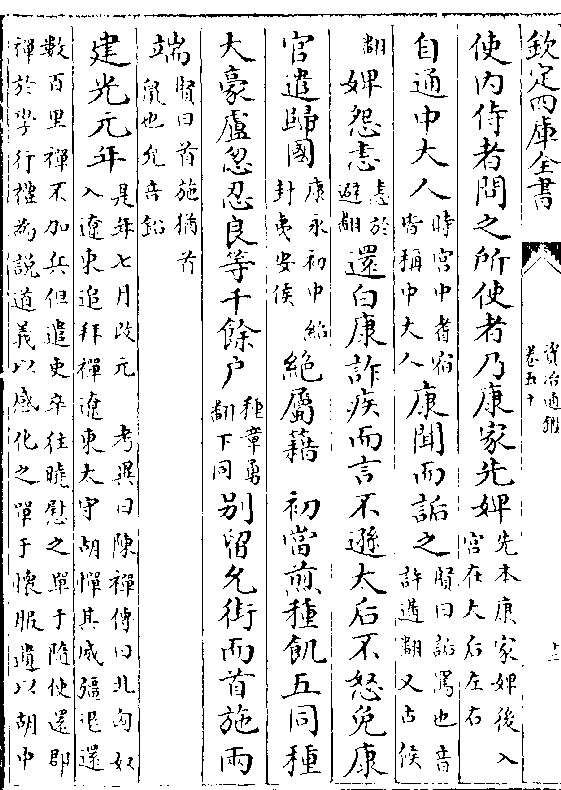 欽定四庫全書
資治通鑑
卷五十
使内侍者問之所使者乃康家先婢先本康家婢後入
宮在太后左右
自通中大人時宮中耆宿
皆稱中大人康聞而詬之賢曰詬罵也音
許遘翻又古候
翻婢怨恚恚於
避翻還白康詐疾而言不遜太后不怒免康
官遣歸國康永初中紹
封夷安侯絶屬籍 初當煎種飢五同種
大豪盧忽忍良等千餘户種章勇
翻下同别留允街而首施兩
端賢曰首施猶首
鼠也允音鉛
建光元年是年七月改元 考異曰陳禪傳曰北匈奴
入遼東追拜禪遼東太守胡憚其威彊退還
數百里禪不加兵但遣吏卒往曉慰之單于隨使還郡
禪於學行禮為說道義以感化之單于懷服遺以胡中